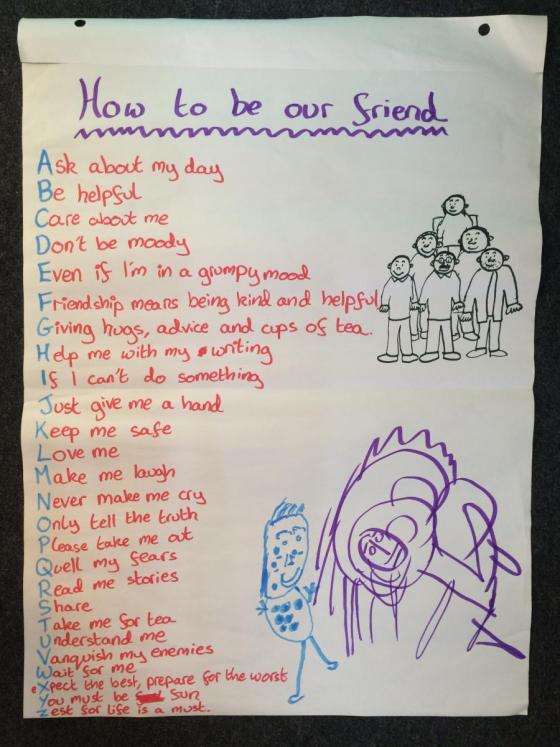 How to be our friend
Ask about my day
Be helpful
Care about me
Don't be moody
Even if I'm in a grumpy mood
Friendship means being kind and helpful
Giving hugs, advice and cups of tea.
Help me with my writing
If I can't do something
Just give me a hand
Keep me safe
Love me
Make me laugh
Never make me cry
Only tell the truth
Please take me out
Quell my fears
Read me stories
Share
Take me for tea
Understand me
Vanquish my enemies
Wait for me
eXpect the best, prepare for the worst
You must be
Zest for life is a must.